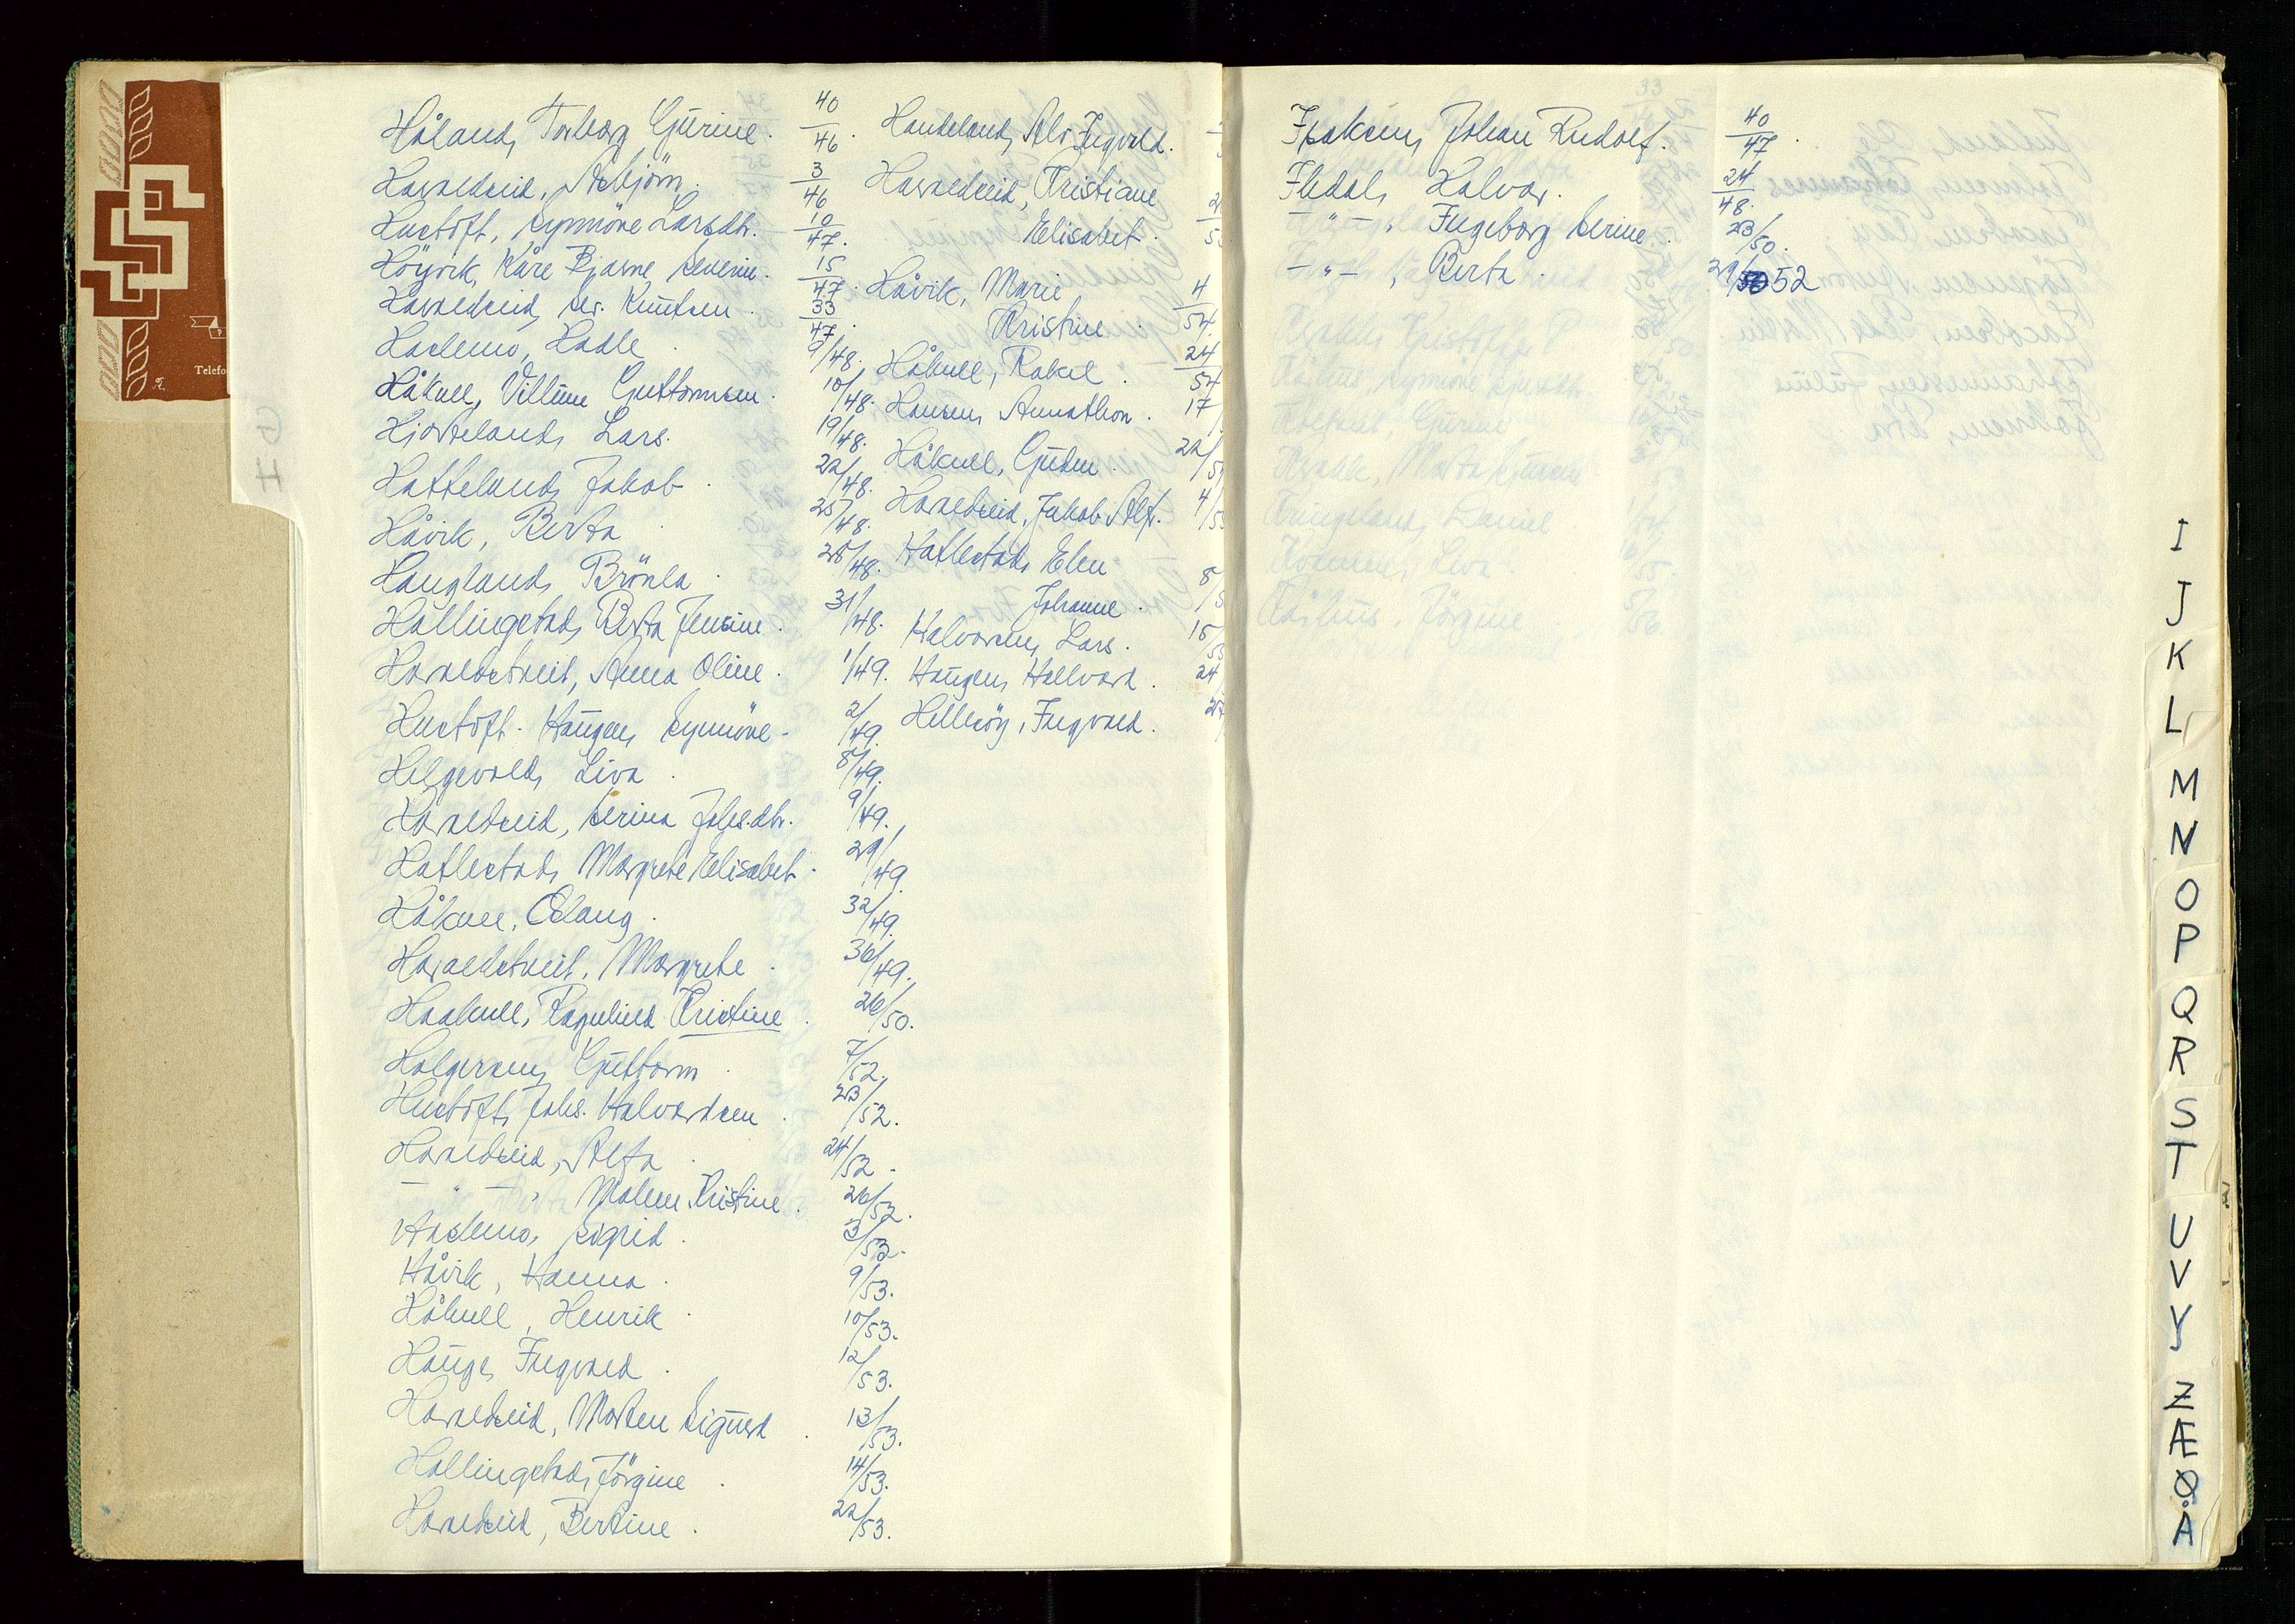 Håland, Torborg Gurine. 40/46.
Haraldseid, Asbjørn. 3/46
Hustoft, Synnöve Larsdtr. 10/47.
Höyvik, Kåre Bjarne Severin. 15/47.
Haraldseid, Sev. Knutsen. 33/47.
Hademo, Ladle. 9/48.
Håkull, Villum Guttormsen. 10/48.
Hjorteland, Lars. 19/48.
Hatteland, Jakob. 22/48.
Håvik, Berta. 25/48.
Haugland, Brönla. 28/48.
Hallingstad, Berta Jensine. 31/48.
Haraldstveit, Anna Oline. 1/49.
Hustoft-Haugen, Synnöve. 2/49.
Helgevold, Liva. 8/49.
Haraldseid, Serina Johs.dtr. 9/49.
Hatlestad, Margrete Elisabet. 29/49
Håkull, Odlaug. 32/49.
Haraldstveit, Margrete. 36/49.
Haakull, Ragnhild Kristine. 26/50.
Holgersen, Guttorm. 7/52.
Hustoft, Johs. Halvardsen. 23/52.
Haraldseid, Alfa. 24/52.
— " —, Malene Kristine. 26/52.
Hademo, Sigrid. 3/53.
Håvik, Hanna. 9/53.
Håkull, Henrik. 10/53.
Hauge, Ingvald. 12/53.
Haraldseid, Morten Sigurd. 13/53.
Hallingstad, Jörgine. 14/53.
Haraldseid, Bertine. 22/53.
Handeland, Alv Ingvald.
Haraldseid, Kristiane
Elisabet.
Håvik, Marie 4/54.
Kristine.
Håkull, Rakel. 24/54
Hansen, Annathon. 17/
Håkull, Guden. 22/
Haraldseid, Jakob Alf. 4/
Hatlestad, Elen
Johanne. 8/
Halvorsen, Lars. 15/
Haugen, Hallvard. 24/
Hillesöy, Ingvald.
Isaksen, Johan Rudolf. 40/47.
Ihdal, Halvor. 24/48.
— " —, Ingeborg Serine. 23/50.
— " —, Berta. 29/52
Telefo
G
H
I
J
K
L
M
N
O
P
Q
R
S
T
U
V
Y
Z
Æ
Ø
Å